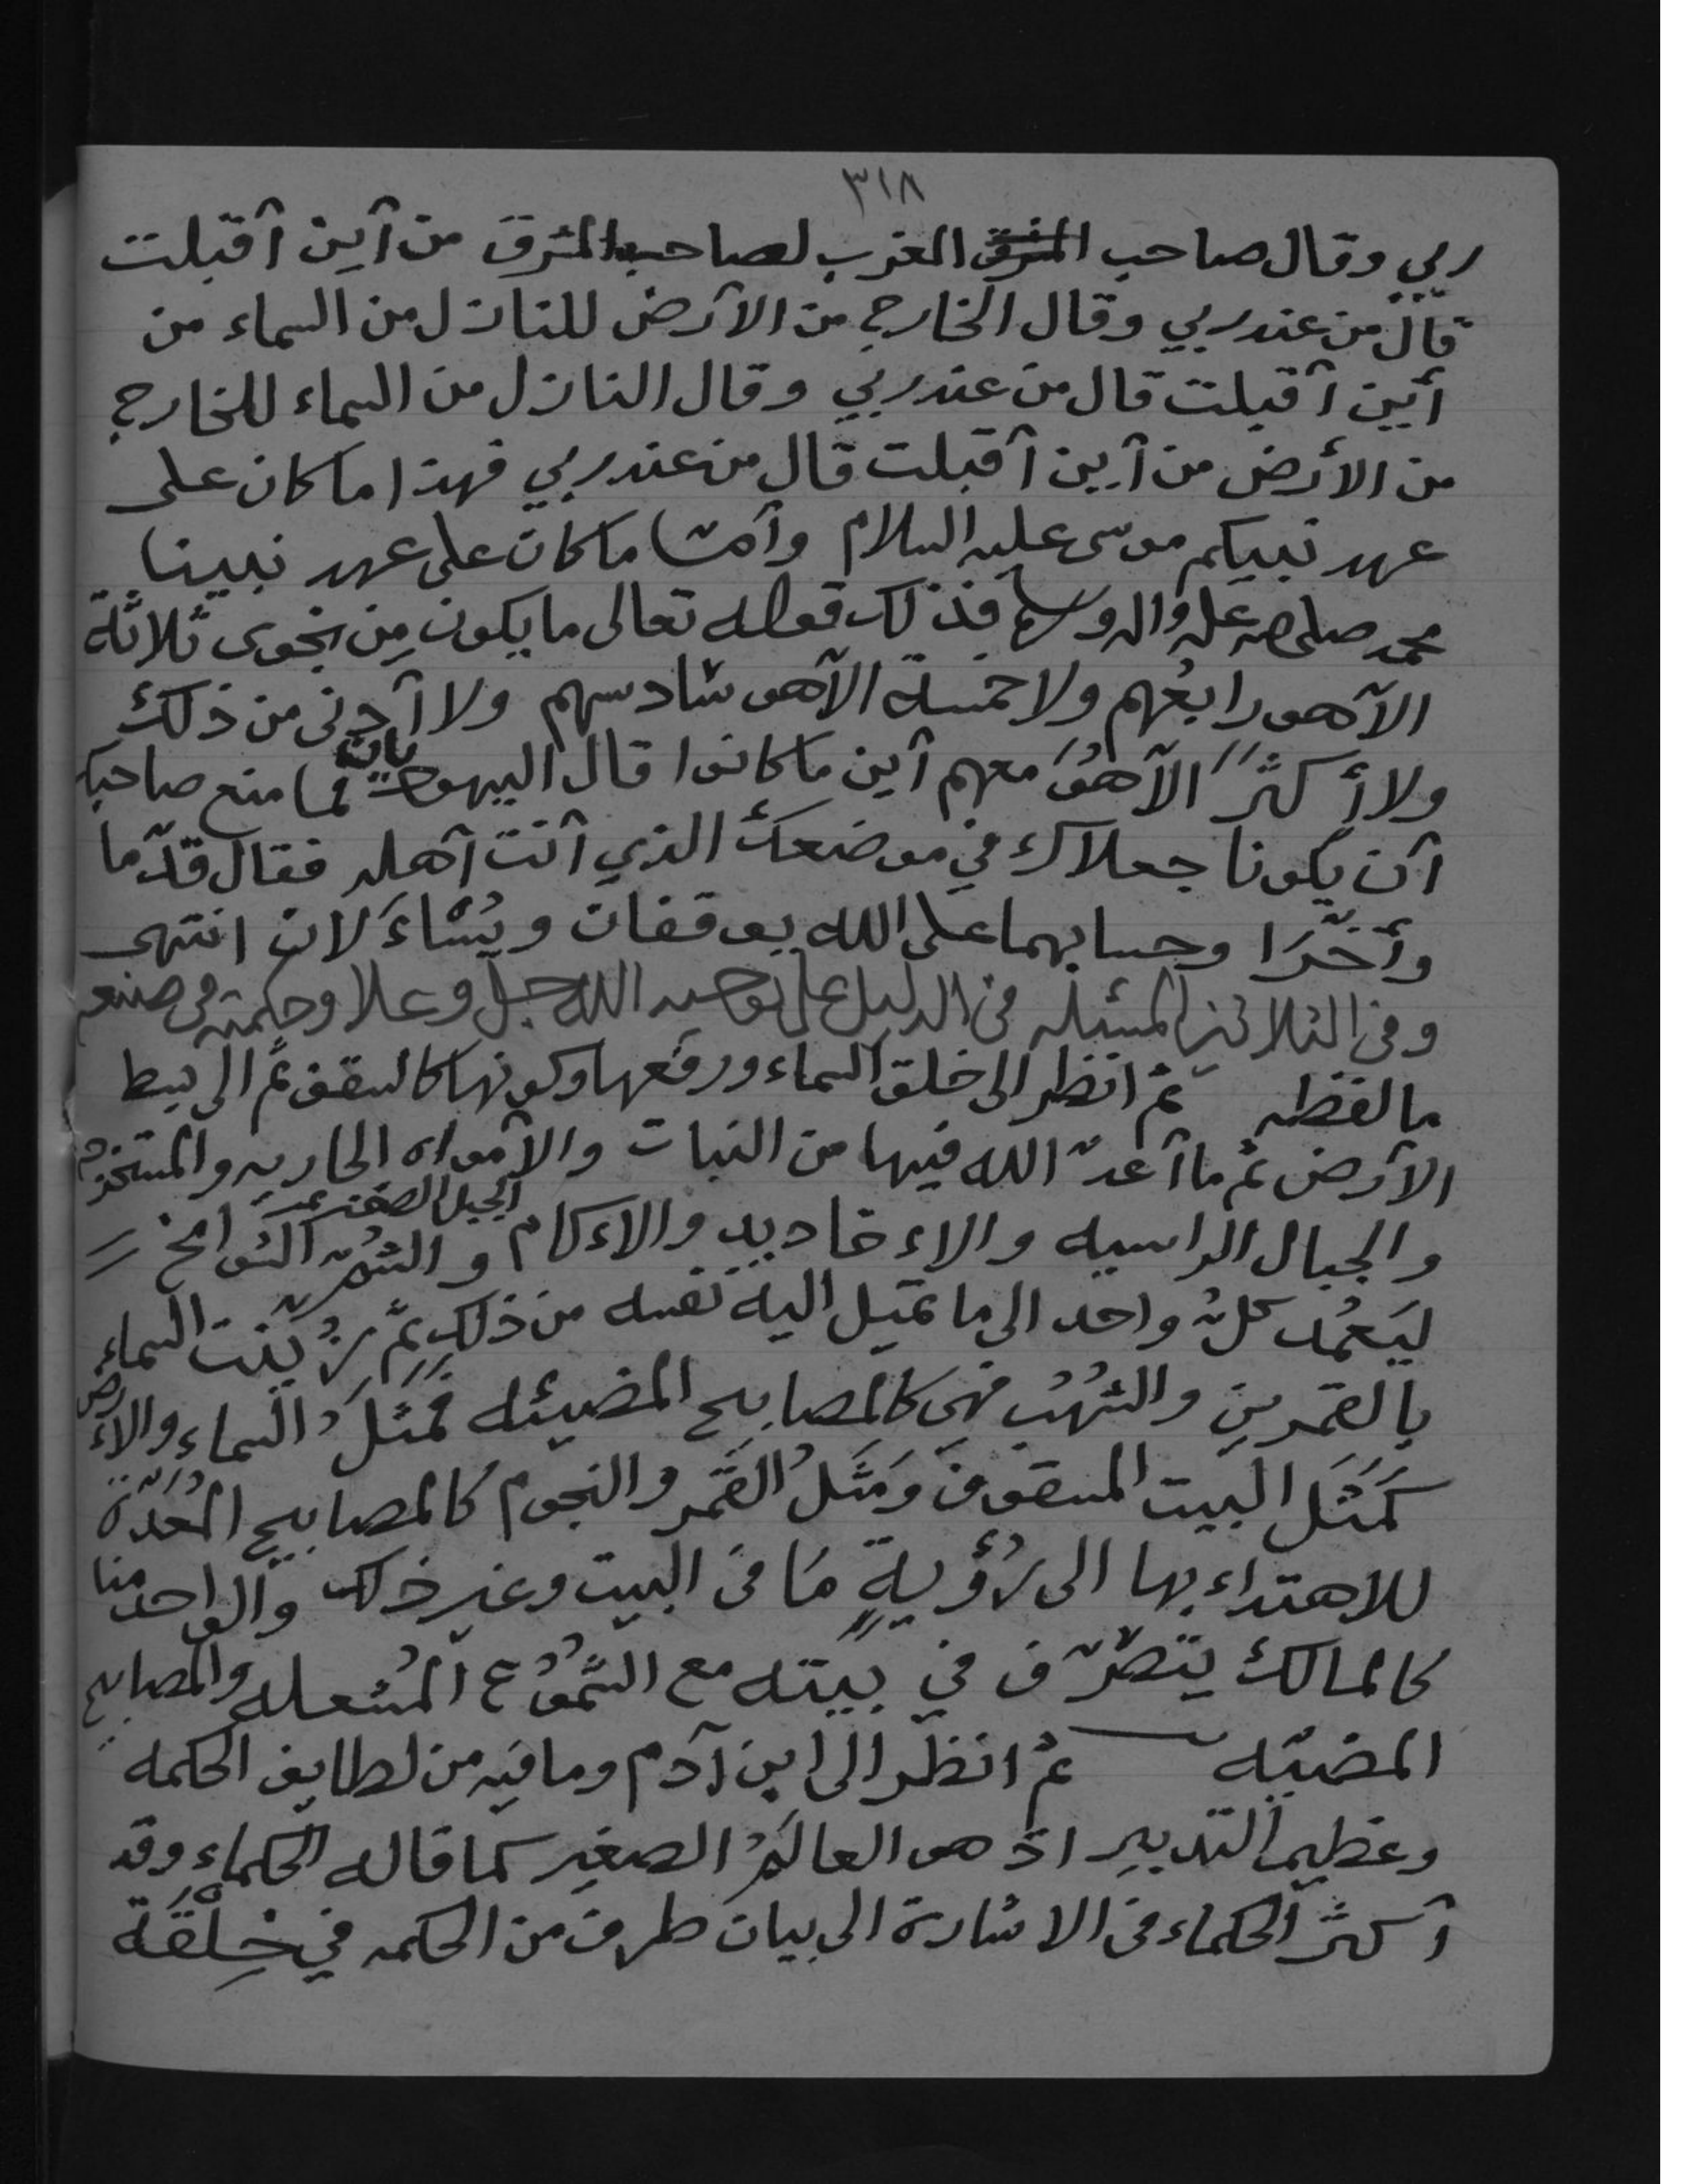 ٣١٨
ربي وقال صاحب المشرق الغرب لصاحب المشرق من أين أقبلت
قال من عند ربي وقال الخارج من الأرض للنازل من السماء من
أين أقبلت قال من عند ربي وقال النازل من السماء للخارج
من الأرض من أين أقبلت قال من عند ربي فهذا ما كان على
عهد نبيكم موسى عليه السلام وأمّا ما كان على عهد نبينا
محمد صلى الله عليه واله وسلم فذلك قوله تعالى ما يكون مِن نجوى ثلاثة
الّا هو رابعُهم ولا خمسة الّا هو سادسهم ولا أدنى من ذلك
ولا أكثرَ الّا هوَ معهم أين ما كانوا قال اليهوديان فما منع صاحبك
أن يكونا جعلاك في موضعك الذي أنت أهله فقال قدّما
وأخّرَا وحسابهما على الله يوقفان ويُسْاءَلان انتهى
وفى الثلاثين المسئله فى الدليل على توحيد الله جل وعلا وحكمته فى صنعه
ما لفظه ثم انظر الى خلق السماء ورفعها وكونها كالسقف ثم الى بسط
الأرض ثم ما أعدّ الله فيها من النبات والأمواه الجاريه والمستخرجه
والجبال الراسيه والاءخاديد والاءكام والشُمّ الشوامخ
الجبل الصغير
ليَعمُد كلُّ واحد الى ما تميل اليه نفسه من ذلك ثمّ زُيّنت السماء
بالقمرينِ والشهُب فهى كالمصابيح المضيئه فمَثَلُ السماء والاءرض
كَمَثَل البيت المسقوف وَمَثَلُ القَمَر والنجوم كالمصابيح المُعَدّة
للاهتداء بها الى رُؤْيةِ مَا فى البيت وغير ذلك والواحد منا
كالمالك يتصرّف في بيته مع الشموُع المُشعله والمصابيح
المضيّه ثم انظر الى ابن آدم وما فيه من لطايف الحكمه
وعظيم التدبير اذ هو العالَمُ الصغير كما قاله الحكماء وقد
أكثر الحكماء فى الاشارة الى بيان طرف من الحكمه في خِلْقَة